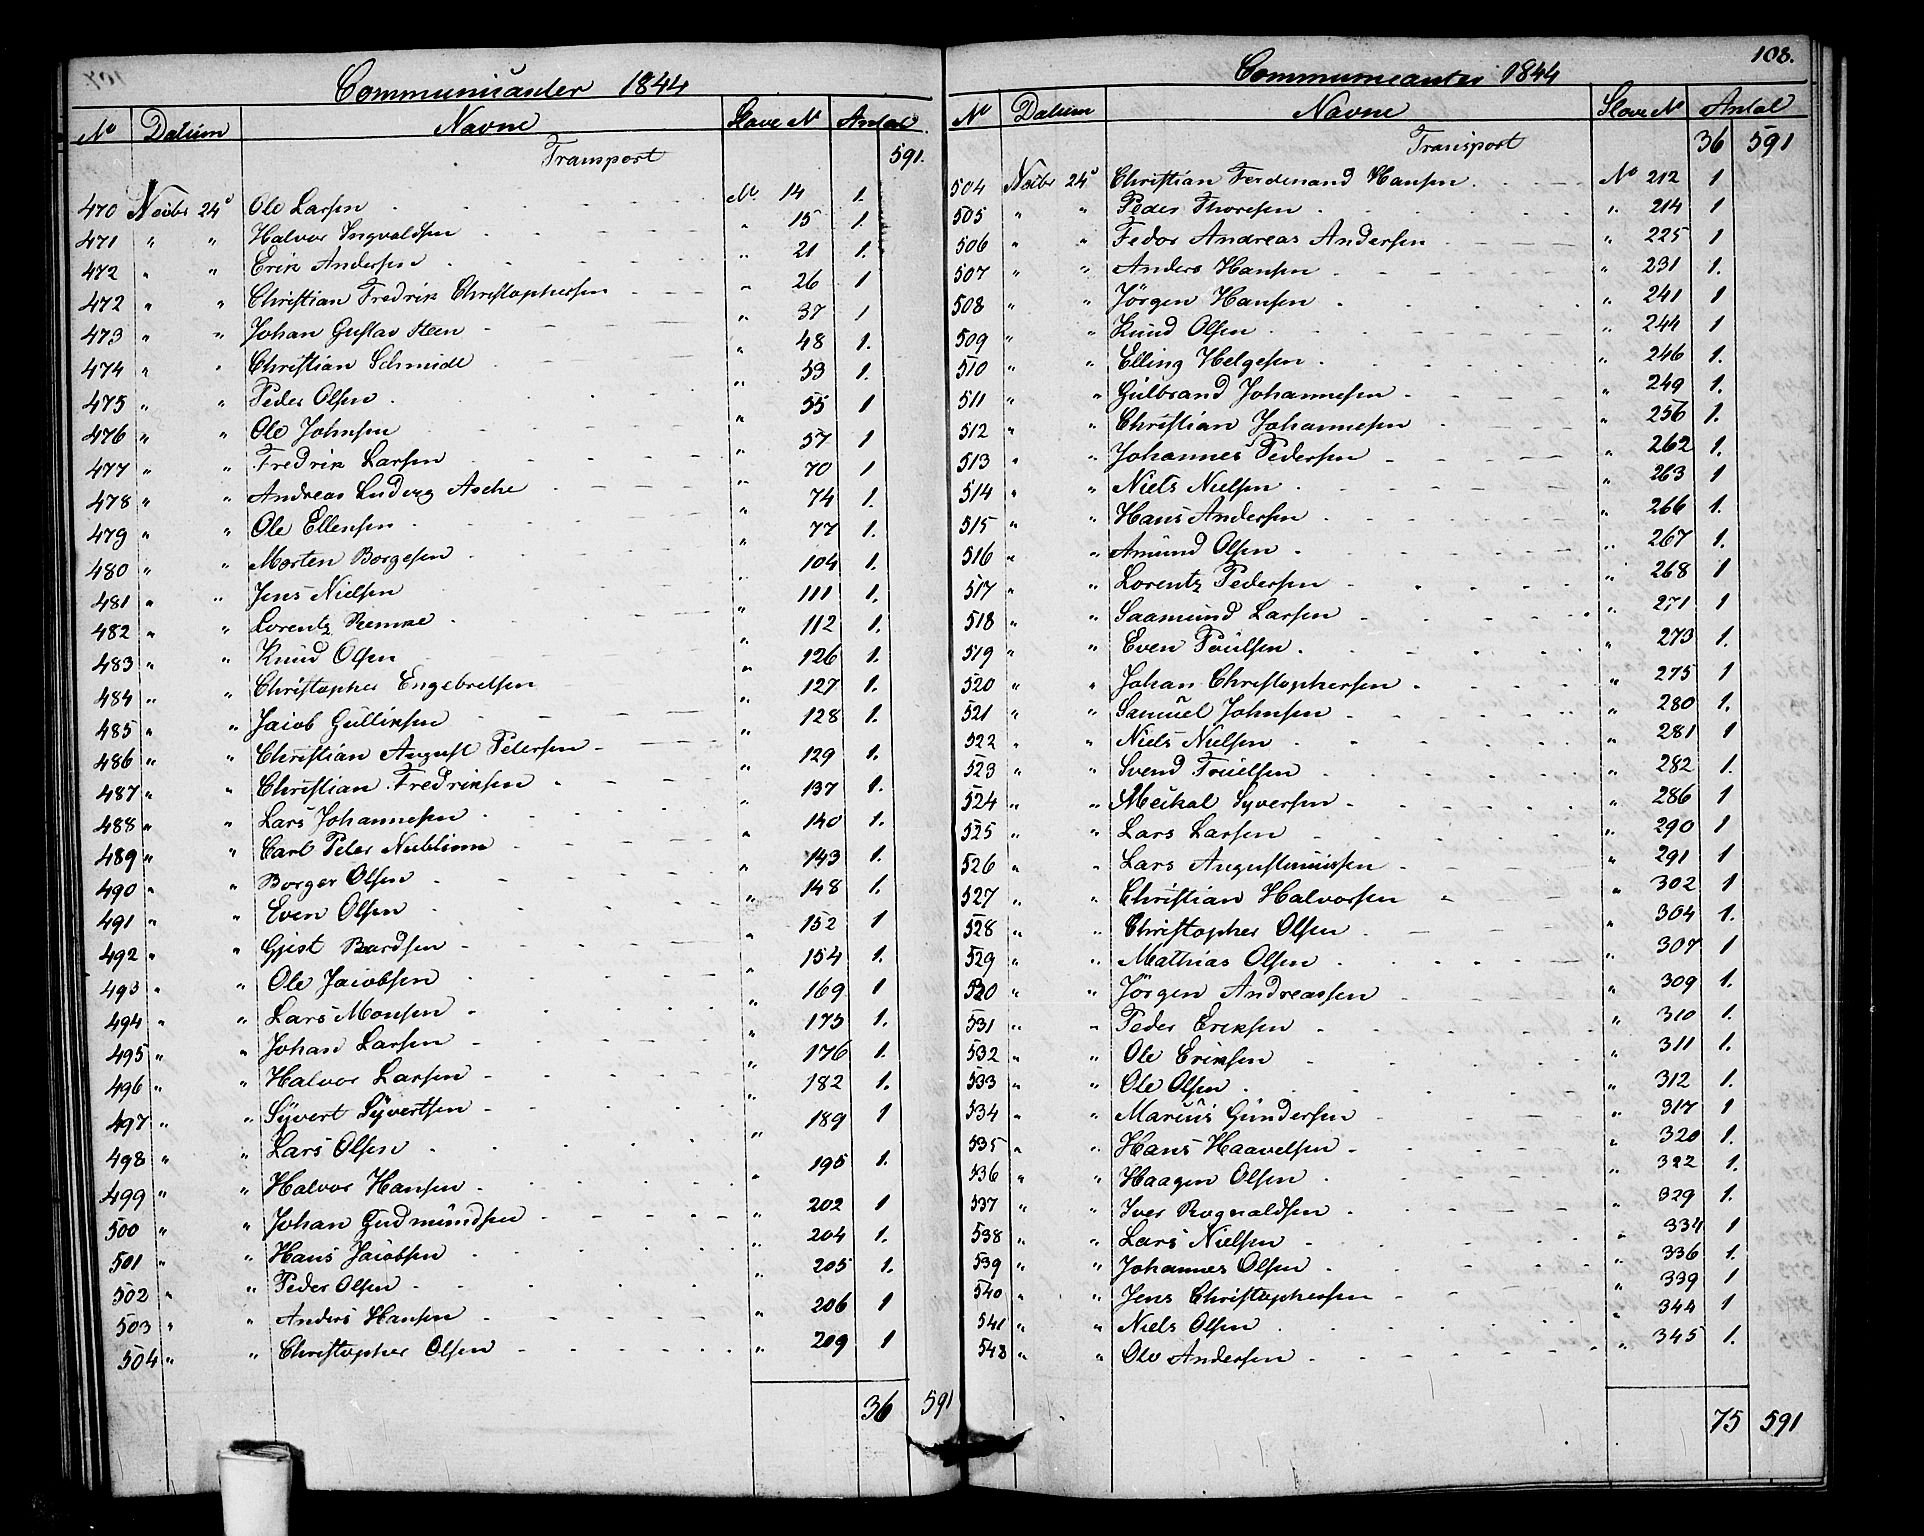 Communicander 1844
No Datum Navne Slave No Antal
Transport 591.
470 Novbr 24d Ole Larsen No 14 1.
471 " " Halvor Ingvaldsen " 15 1.
472 " " Erik Andersen " 21 1.
472 " " Christian Fredrik Christophersen " 26 1
473 " " Johan Gustav Steen " 37 1
474 " " Christian Schmidt " 48 1.
475 " " Peder Olsen " 53 1.
476 " " Ole Johnsen " 55 1
477 " " Fredrik Larsen " 57 1
478 " " Andreas Ludvig Asche " 70 1
479 " " Ole Ellensen " 74 1.
480 " " Morten Borgesen " 77 1.
481 " " Jens Nielsen " 104 1.
482 " " Lorentz Remke " 111 1.
483 " " Knud Olsen " 112 1.
484 " " Christopher Engebretsen " 126 1.
485 " " Jacob Gulliksen " 127 1.
486 " " Christian August Petersen " 128 1.
487 " " Christian Fredriksen " 129 1.
488 " " Lars Johannesen " 137 1.
489 " " Carl Peter " 140 1.
490 " " Borger Olsen " 143 1.
491 " " Even Olsen " 148 1.
492 " " Gjest Bardsen " 152 1
493 " " Ole Jacobsen " 154 1.
494 " " Lars Monsen " 169 1
495 " " Johan Larsen " 175 1.
496 " " Halvor Larsen " 176 1.
497 " " Syvert Syvertsen " 182 1.
498 " " Lars Olsen " 189 1
499 " " Halvor Hansen " 195 1.
500 " " Johan Gudmundsen " 202 1
501 " " Hans Jacobsen " 204 1.
502 " " Peder Olsen " 205 1.
503 " " Anders Hansen " 206 1
504 " " Christopher Olsen " 209 1
36 591
108.
Communicanter 1844
No Datum Navne Slave No Antal
Transport 36 591
504 Novbr 24d Christian Ferdinand Hansen No 212 1
505 " " Peder Thoresen " 214 1
506 " " Fedor Andreas Andersen " 225 1
507 " " Anders Hansen " 231 1.
508 " " Jörgen Hansen " 241 1
509 " " Knud Olsen " 244 1
510 " " Elling Helgesen " 246 1.
511 " " Gulbrand Johannesen " 249 1.
512 " " Christian Johannesen " 256 1.
513 " " Johannes Pedersen " 262 1.
514 " " Niels Nielsen " 263 1
515 " " Hans Andersen " 266 1.
516 " " Amund Olsen " 267 1.
517 " " Lorentz Pedersen " 268 1
518 " " Saamund Larsen " 271 1
519 " " Even Poulsen " 273 1.
520 " " Johan Christophersen " 275 1
521 " " Samuel Johnsen " 280 1.
522 " " Niels Nielsen " 281 1
523 " " Svend Truelsen " 282 1.
524 " " Meikal Syversen " 286 1
525 " " Lars Larsen " 290 1
526 " " Lars Augustinussen " 291 1
527 " " Christian Halvorsen " 302 1
528 " " Christopher Olsen " 304 1.
529 " " Mathias Olsen " 307 1
530 " " Jörgen Andreassen " 309 1.
531 " " Peder Eriksen " 310 1.
532 " " Ole Eriksen " 311 1.
533 " " Ole Olsen " 312 1.
534 " " Marius Gundersen " 317 1
535 " " Hans Haavelsen " 320 1.
536 " " Haagen Olsen " 322 1.
537 " " Iver Rognaldsen " 329 1.
538 " " Lars Nielsen " 334 1
539 " " Johannes Olsen " 336 1.
540 " " Jens Christophersen " 339 1
541 " " Niels Olsen " 344 1
548 " " Olv Andersen " 345 1.
75 591